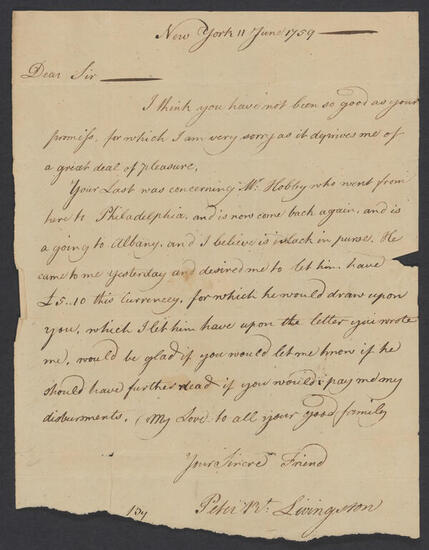 New York 11 June 1759
Dear Sir
I think you have not been so good as your
promiss, for which I am very sorry as it deprives me of
a great deal of Pleasure.
Your Last was concerning Mr. Hobby who went from
here to Philadelphia, and is now come back again, and is
a going to Albany, and I believe is slack in purse. He
came to me Yesterday and desired me to let him have
£5..10 this Currencey, for which he would draw upon
you, which I let him have upon the letter you wrote
me, would be glad if you would let me know if he
should have further need if you would pay me my
disburments. My Love to all your good family
Your Sincre Friend
Peter Rt. Livingston